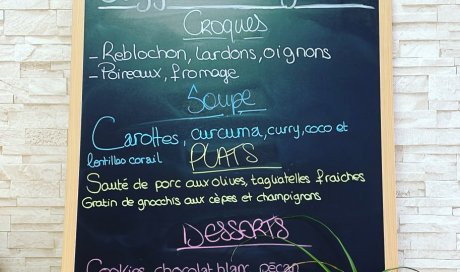 CROQUES
- Reblochon, lardons, oignons
- Poireaux, fromage
SOUPE
Carottes, curcuma, curry, coco et
lentilles corail
PLATS
Sauté de porc aux olives, tagliatelles fraîches
Gratin de gnocchis aux cèpes et champignons
DESSERTS
Cookies chocolat blanc pécan